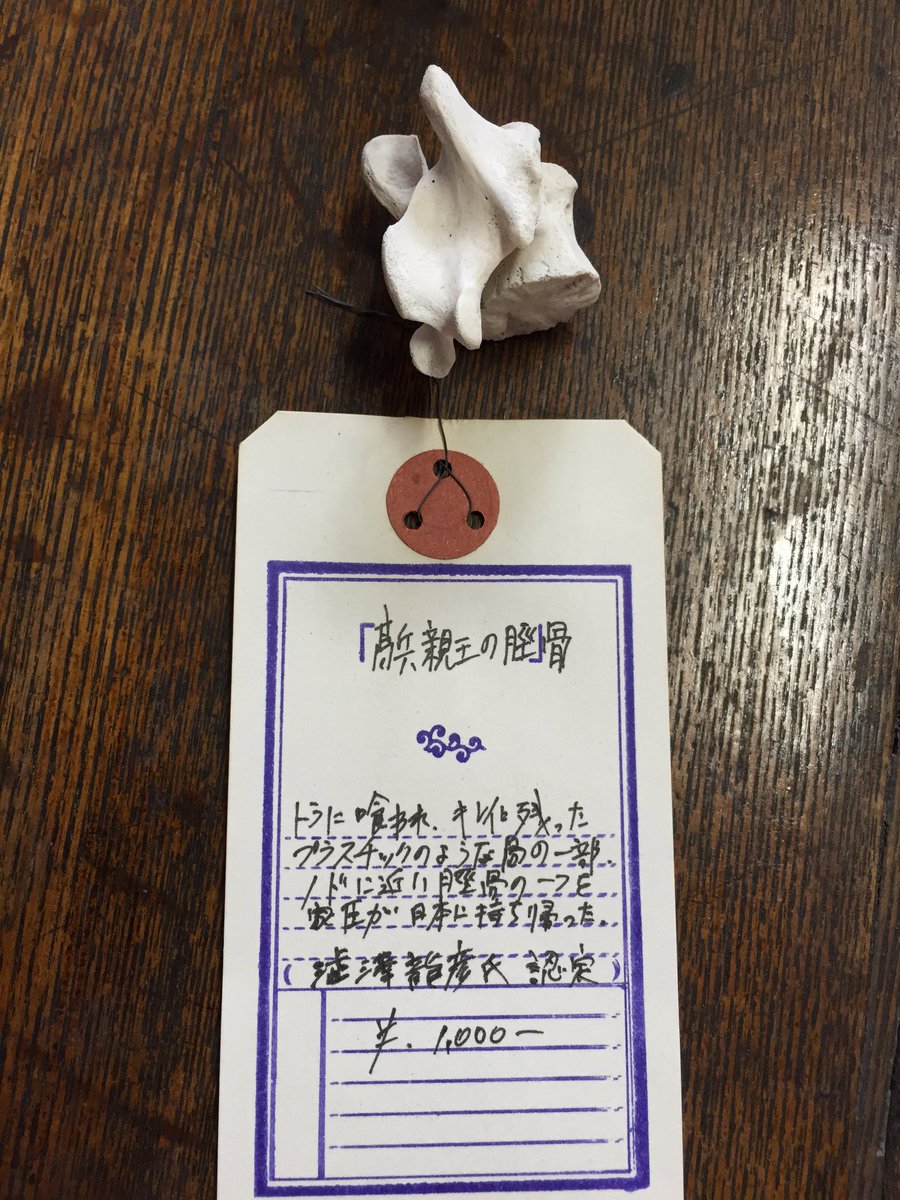 「髙兵親王の脛」骨
トラに喰われ、キレイに残った
プラスチックのような骨の一部、
ノドに近い脛骨の一つを
が日本に持ち帰った。
(澁澤龍彦氏 認定)
¥. 1,000ー